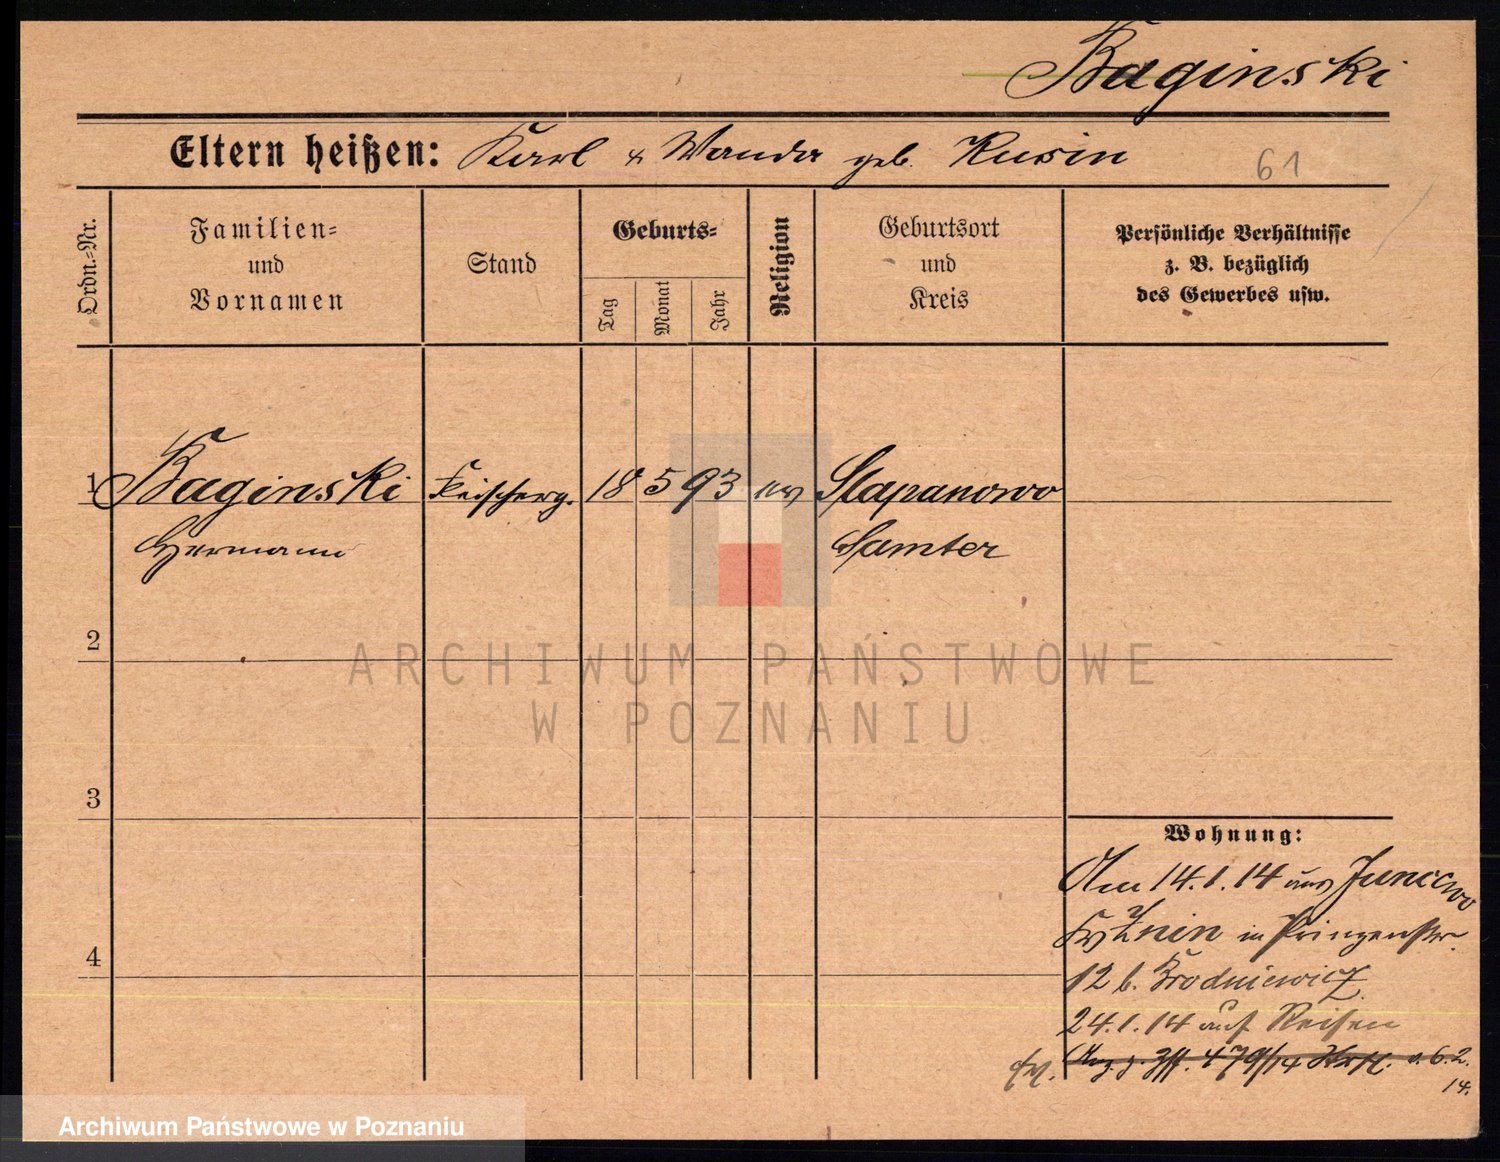 Baginski
Eltern heißen: Karl & Wanda geb. Kusin
61
Ordn.-Nr.
Familien-
und
Vornamen
Stand
Geburts-
Tag
Monat
Jahr
Religion
Geburtsort
und
Kreis
Persönliche Verhältnisse
z. B. bezüglich
des Gewerbes usw.
1 Baginski Fleischerg. 18 5 93 ev Slapanowo
Hermann Samter
2
ARCHIWUM PAŃSTWOWE
W POZNANIU
3
Wohnung:
Am 14.1.14 aus Junicwo
Znin in Prinzenstr.
12 b. Brodniewicz
4
24.1.14 auf Reisen
479/14 v. 6.2.
14.
Archiwum Państwowe w Poznaniu